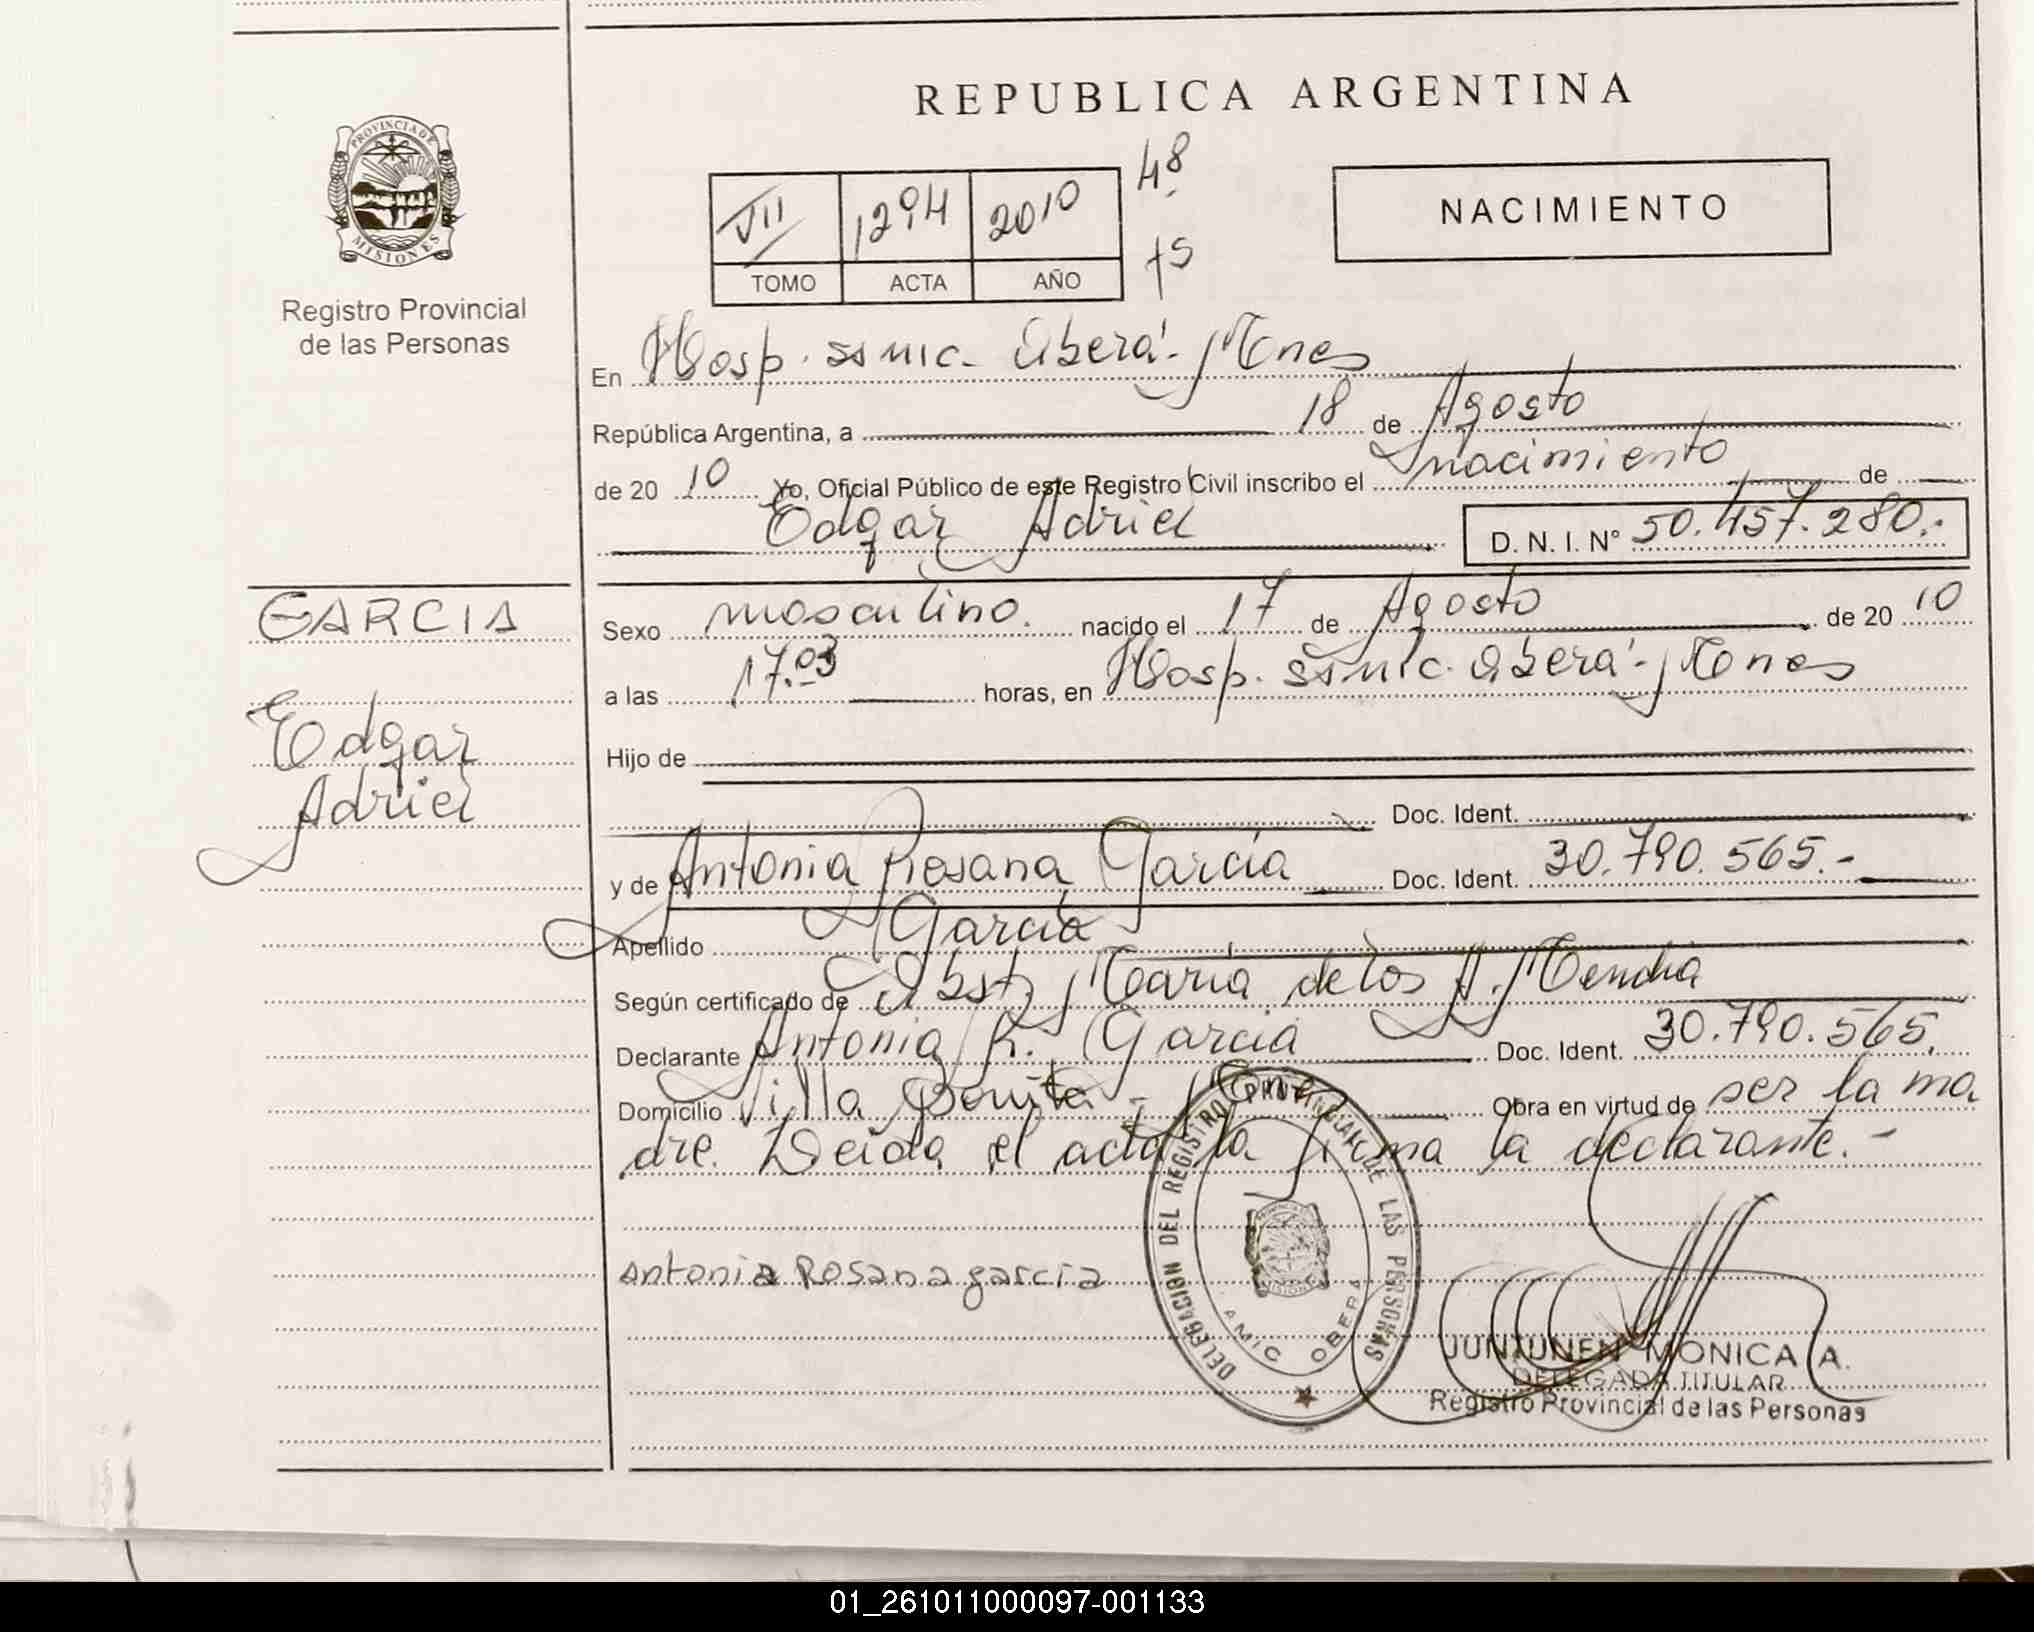 REPUBLICA ARGENTINA
PROVINCIA DE
MISIONES
Registro Provincial
de las Personas
VII 1294 2010
TOMO ACTA AÑO
48
75
NACIMIENTO
En Hosp. SSMIC. Oberá - Mnes
República Argentina, a 18 de Agosto
de 20 10 Yo, Oficial Público de este Registro Civil inscribo el nacimiento de
Edgar Adriel D. N. I. N° 50.457.280.-
GARCIA
Edgar
Adriel
Sexo masculino. nacido el 17 de Agosto de 20 10
a las 17.03 horas, en Hosp. SSMIC. Oberá - Mnes
Hijo de
Doc. Ident.
y de Antonia Rosana García Doc. Ident. 30.790.565.-
Apellido García
Según certificado de Obst. María de los A.
Declarante Antonia R. García Doc. Ident. 30.790.565.
Domicilio Villa Bonita - Mnes Obra en virtud de ser la ma
dre. Leida el acta la firma la declarante.-
Antonia Rosana garcia
DELEGACION DEL REGISTRO PROVINCIAL DE LAS PERSONAS
MISIONES
AMIC OBERA
MONICA A.
DELEGADA TITULAR
Registro Provincial de las Personas
01_261011000097-001133